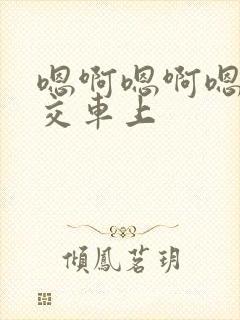 嗯啊嗯啊嗯
交車上
傾鳳茗玥